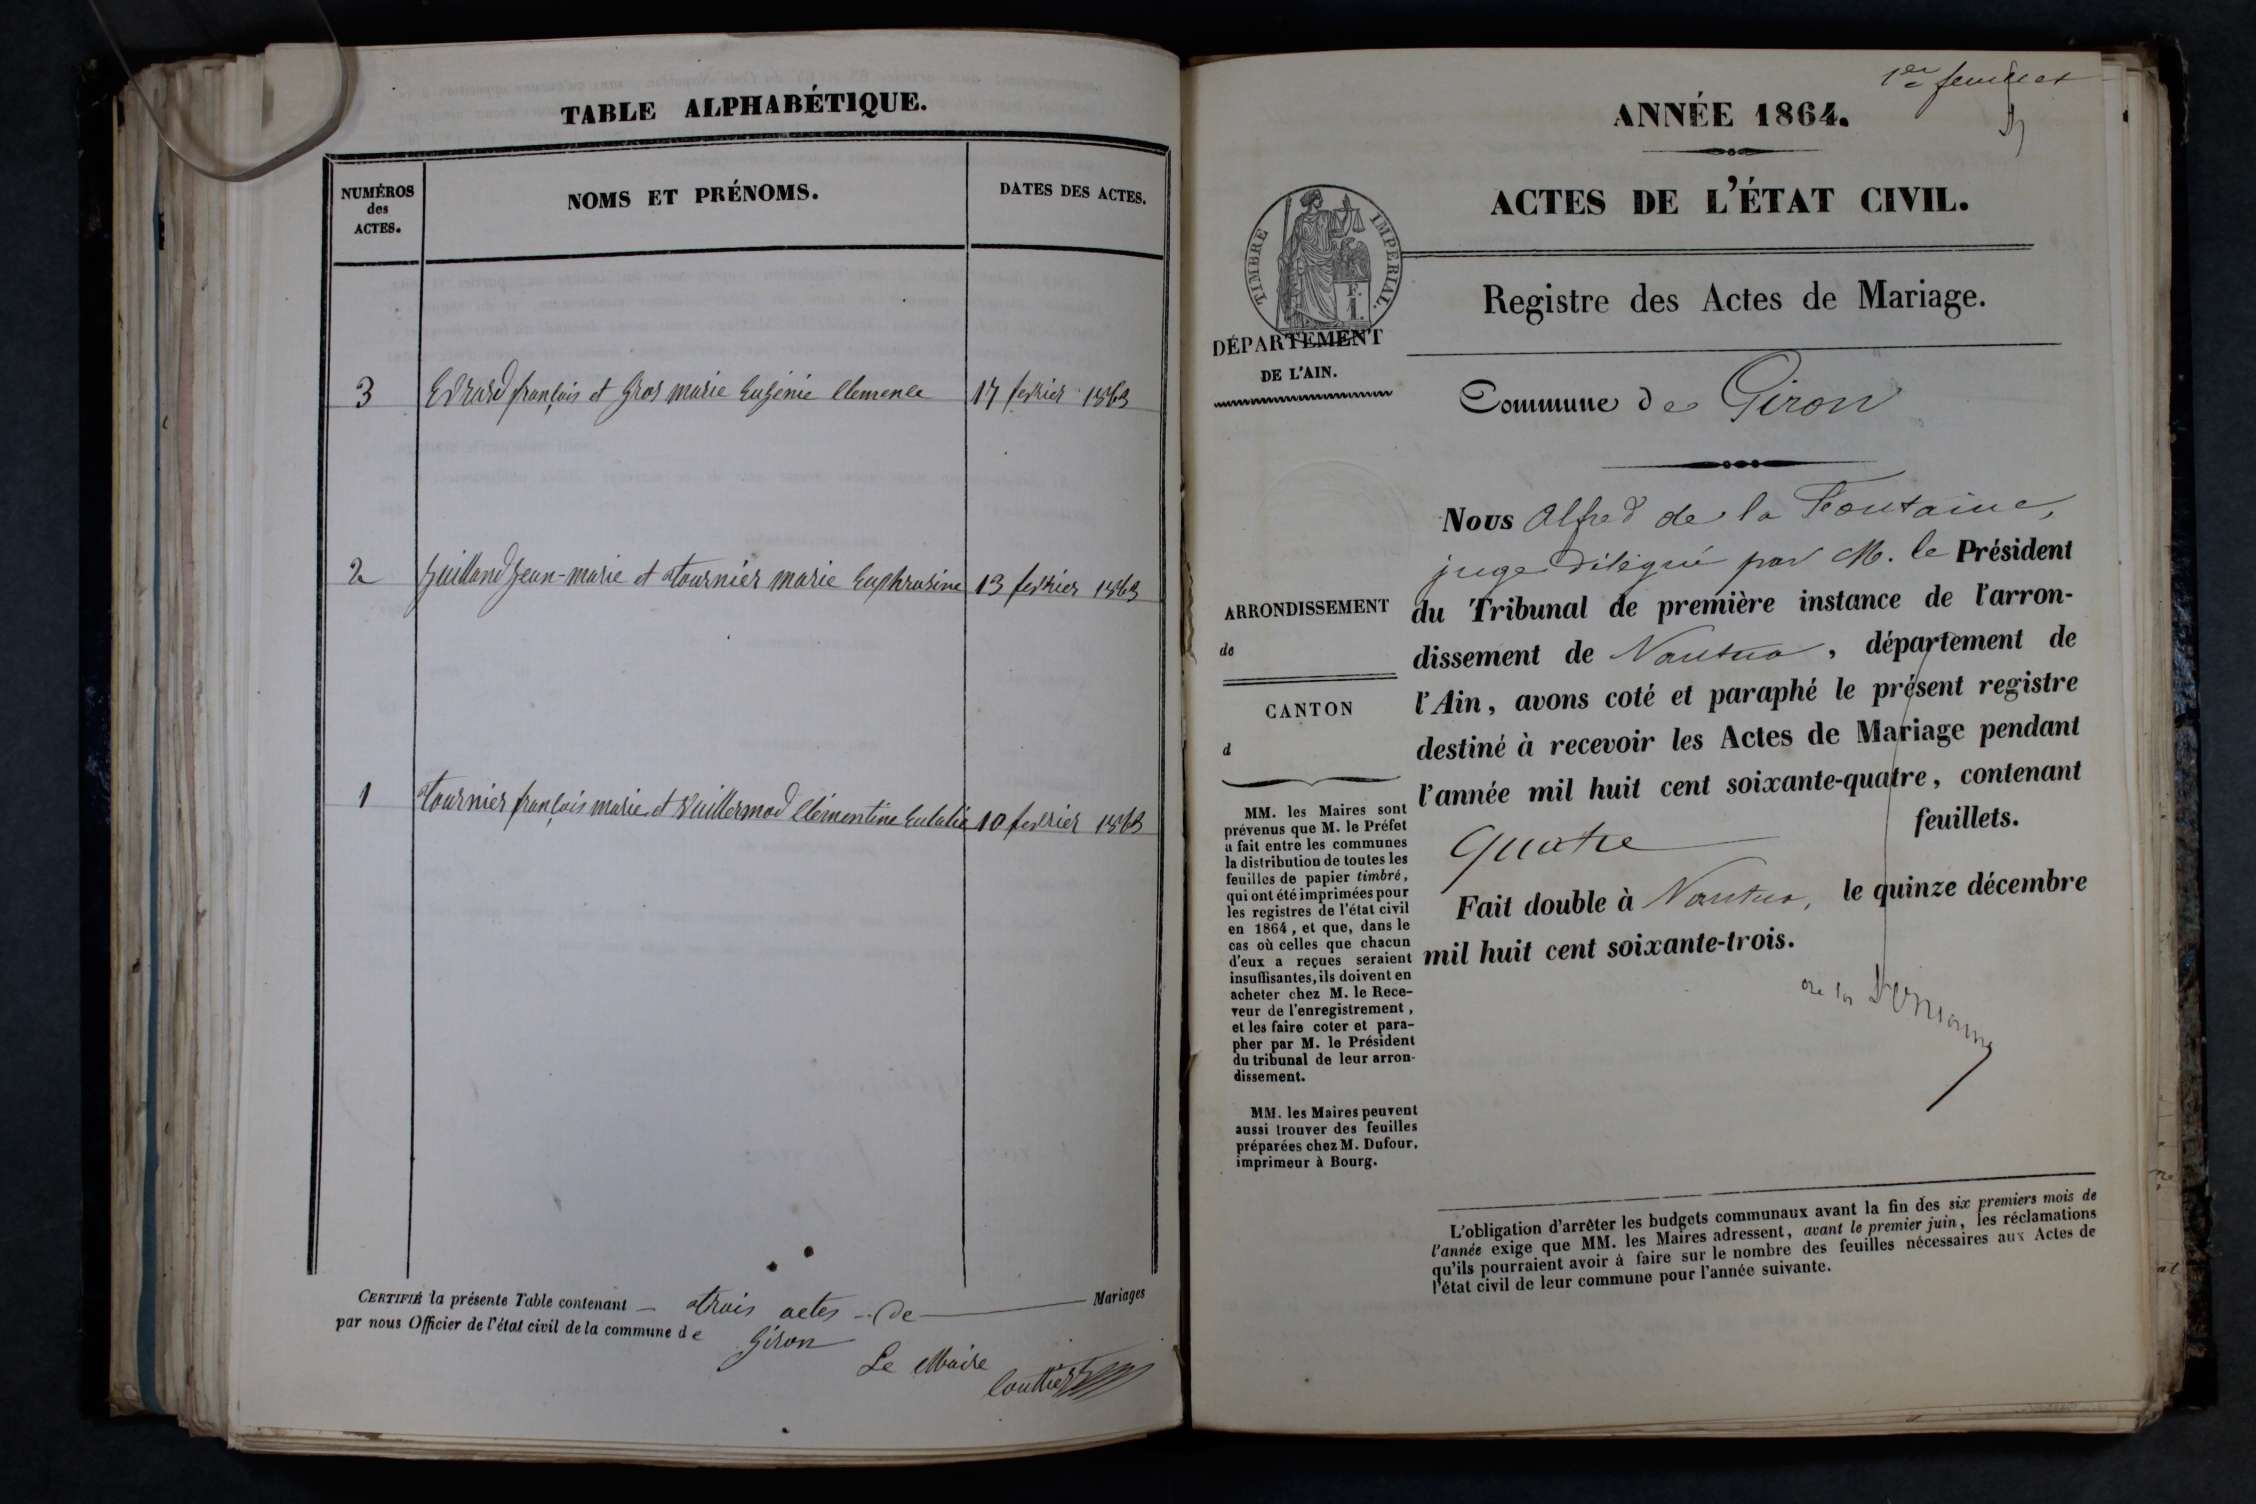 TABLE ALPHABÉTIQUE.
NUMÉROS
des
ACTES.
NOMS ET PRÉNOMS.
DATES DES ACTES.
3 Evrard françois et Gros marie Eugénie Clemence 17 fevrier 1863
2 Guilland Jean-marie et tournier marie Euphrasine 13 fevrier 1863
1 tournier françois marie et Vuillermod Clémentine Eulalie 10 fevrier 1863
CERTIFIÉ la présente Table contenant trois actes de Mariages
par nous Officier de l'état civil de la commune de Giron
Le Maire
1er feuillet
ANNÉE 1864.
ACTES DE L'ÉTAT CIVIL.
TIMBRE IMPÉRIAL.
F.
1.
DÉPARTEMENT
DE L'AIN.
Registre des Actes de Mariage.
Commune de Giron
Nous Alfred de la Fontaine,
juge délégué par M. le Président
du Tribunal de première instance de l'arron-
dissement de Nantua, département de
l'Ain, avons coté et paraphé le présent registre
destiné à recevoir les Actes de Mariage pendant
l'année mil huit cent soixante-quatre, contenant
quatre feuillets.
Fait double à Nantua, le quinze décembre
mil huit cent soixante-trois.
ARRONDISSEMENT
de
CANTON
d
MM. les Maires sont
prévenus que M. le Préfet
a fait entre les communes
la distribution de toutes les
feuilles de papier timbré,
qui ont été imprimées pour
les registres de l'état civil
en 1864, et que, dans le
cas où celles que chacun
d'eux a reçues seraient
insuffisantes, ils doivent en
acheter chez M. le Rece-
veur de l'enregistrement,
et les faire coter et para-
pher par M. le Président
du tribunal de leur arron-
dissement.
MM. les Maires peuvent
aussi trouver des feuilles
préparées chez M. Dufour,
imprimeur à Bourg.
L'obligation d'arrêter les budgets communaux avant la fin des six premiers mois de
l'année exige que MM. les Maires adressent, avant le premier juin, les réclamations
qu'ils pourraient avoir à faire sur le nombre des feuilles nécessaires aux Actes de
l'état civil de leur commune pour l'année suivante.